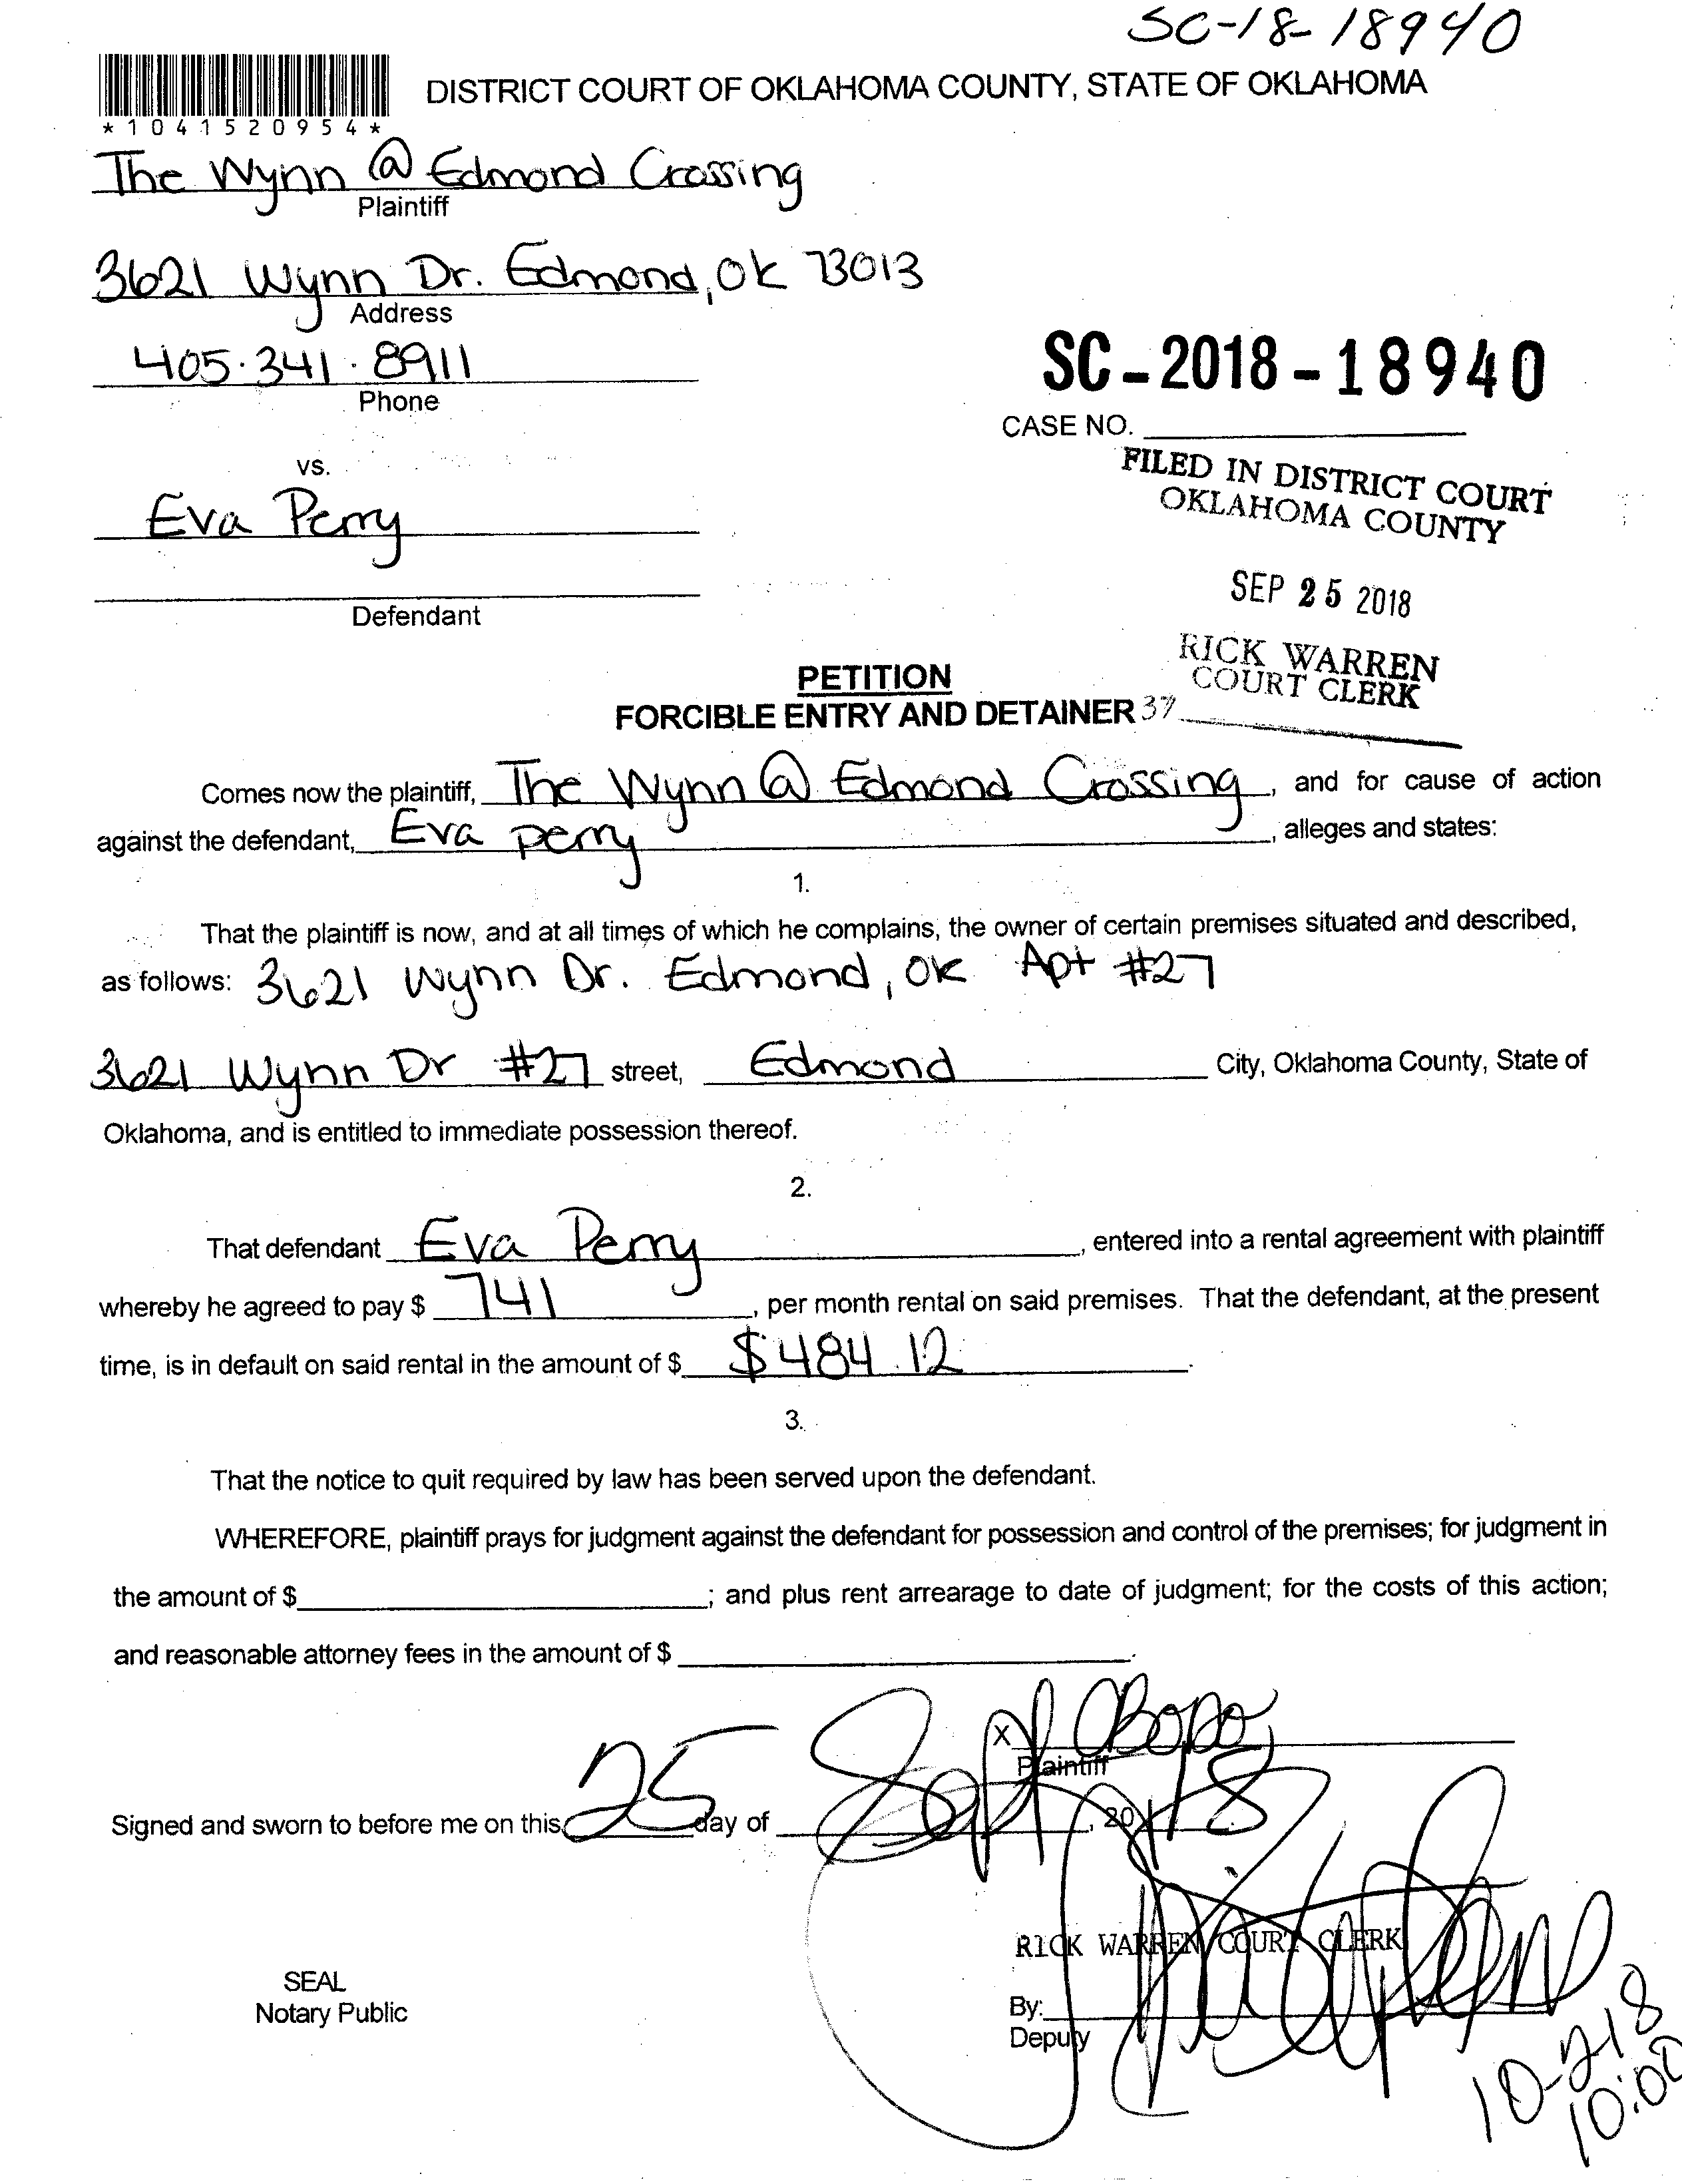 SC-18-18940
DISTRICT COURT OF OKLAHOMA COUNTY, STATE OF OKLAHOMA
*1041520954*
The Wynn @ Edmond Crossing
Plaintiff
3621 Wynn Dr. Edmond, OK 73013
Address
405.341.8911
Phone
SC-2018-18940
CASE NO.
vs.
FILED IN DISTRICT COURT
OKLAHOMA COUNTY
Eva Perry
SEP 25 2018
Defendant
RICK WARREN
COURT CLERK
PETITION
FORCIBLE ENTRY AND DETAINER 37
Comes now the plaintiff, The Wynn @ Edmond Crossing, and for cause of action
against the defendant, Eva perry, alleges and states:
1.
That the plaintiff is now, and at all times of which he complains, the owner of certain premises situated and described,
as follows: 3621 Wynn Dr. Edmond, OK Apt #27
3621 Wynn Dr #27 street, Edmond City, Oklahoma County, State of
Oklahoma, and is entitled to immediate possession thereof.
2.
That defendant Eva Perry, entered into a rental agreement with plaintiff
whereby he agreed to pay $ 741, per month rental on said premises. That the defendant, at the present
time, is in default on said rental in the amount of $ $484.12.
3.
That the notice to quit required by law has been served upon the defendant.
WHEREFORE, plaintiff prays for judgment against the defendant for possession and control of the premises; for judgment in
the amount of $ ; and plus rent arrearage to date of judgment; for the costs of this action;
and reasonable attorney fees in the amount of $ .
X
Plaintiff
Signed and sworn to before me on this 25 day of Sept, 2018
RICK WARREN COURT CLERK
SEAL
Notary Public
By:
Deputy
10-2-18
10:00